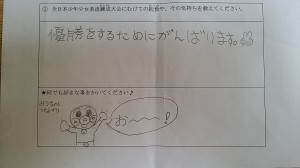 ② 全日本少年少女武道錬成大会にむけての抱負や、その気持ちを教えてください。
優勝をするためにがんばります。
★何でも好きな事をかいてください♪
お～～～！